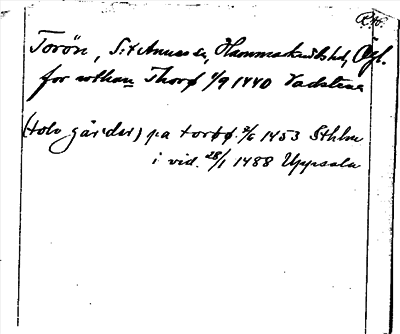 Ög.
Torön, S:t Anna sn, Hammarkinds hd, Ögl.
for rethan Thorø 1/9 1440 Vadstena
(tolv gårdar) pa torøø 2/6 1453 Sthlm
i vid. 28/1 1488 Uppsala